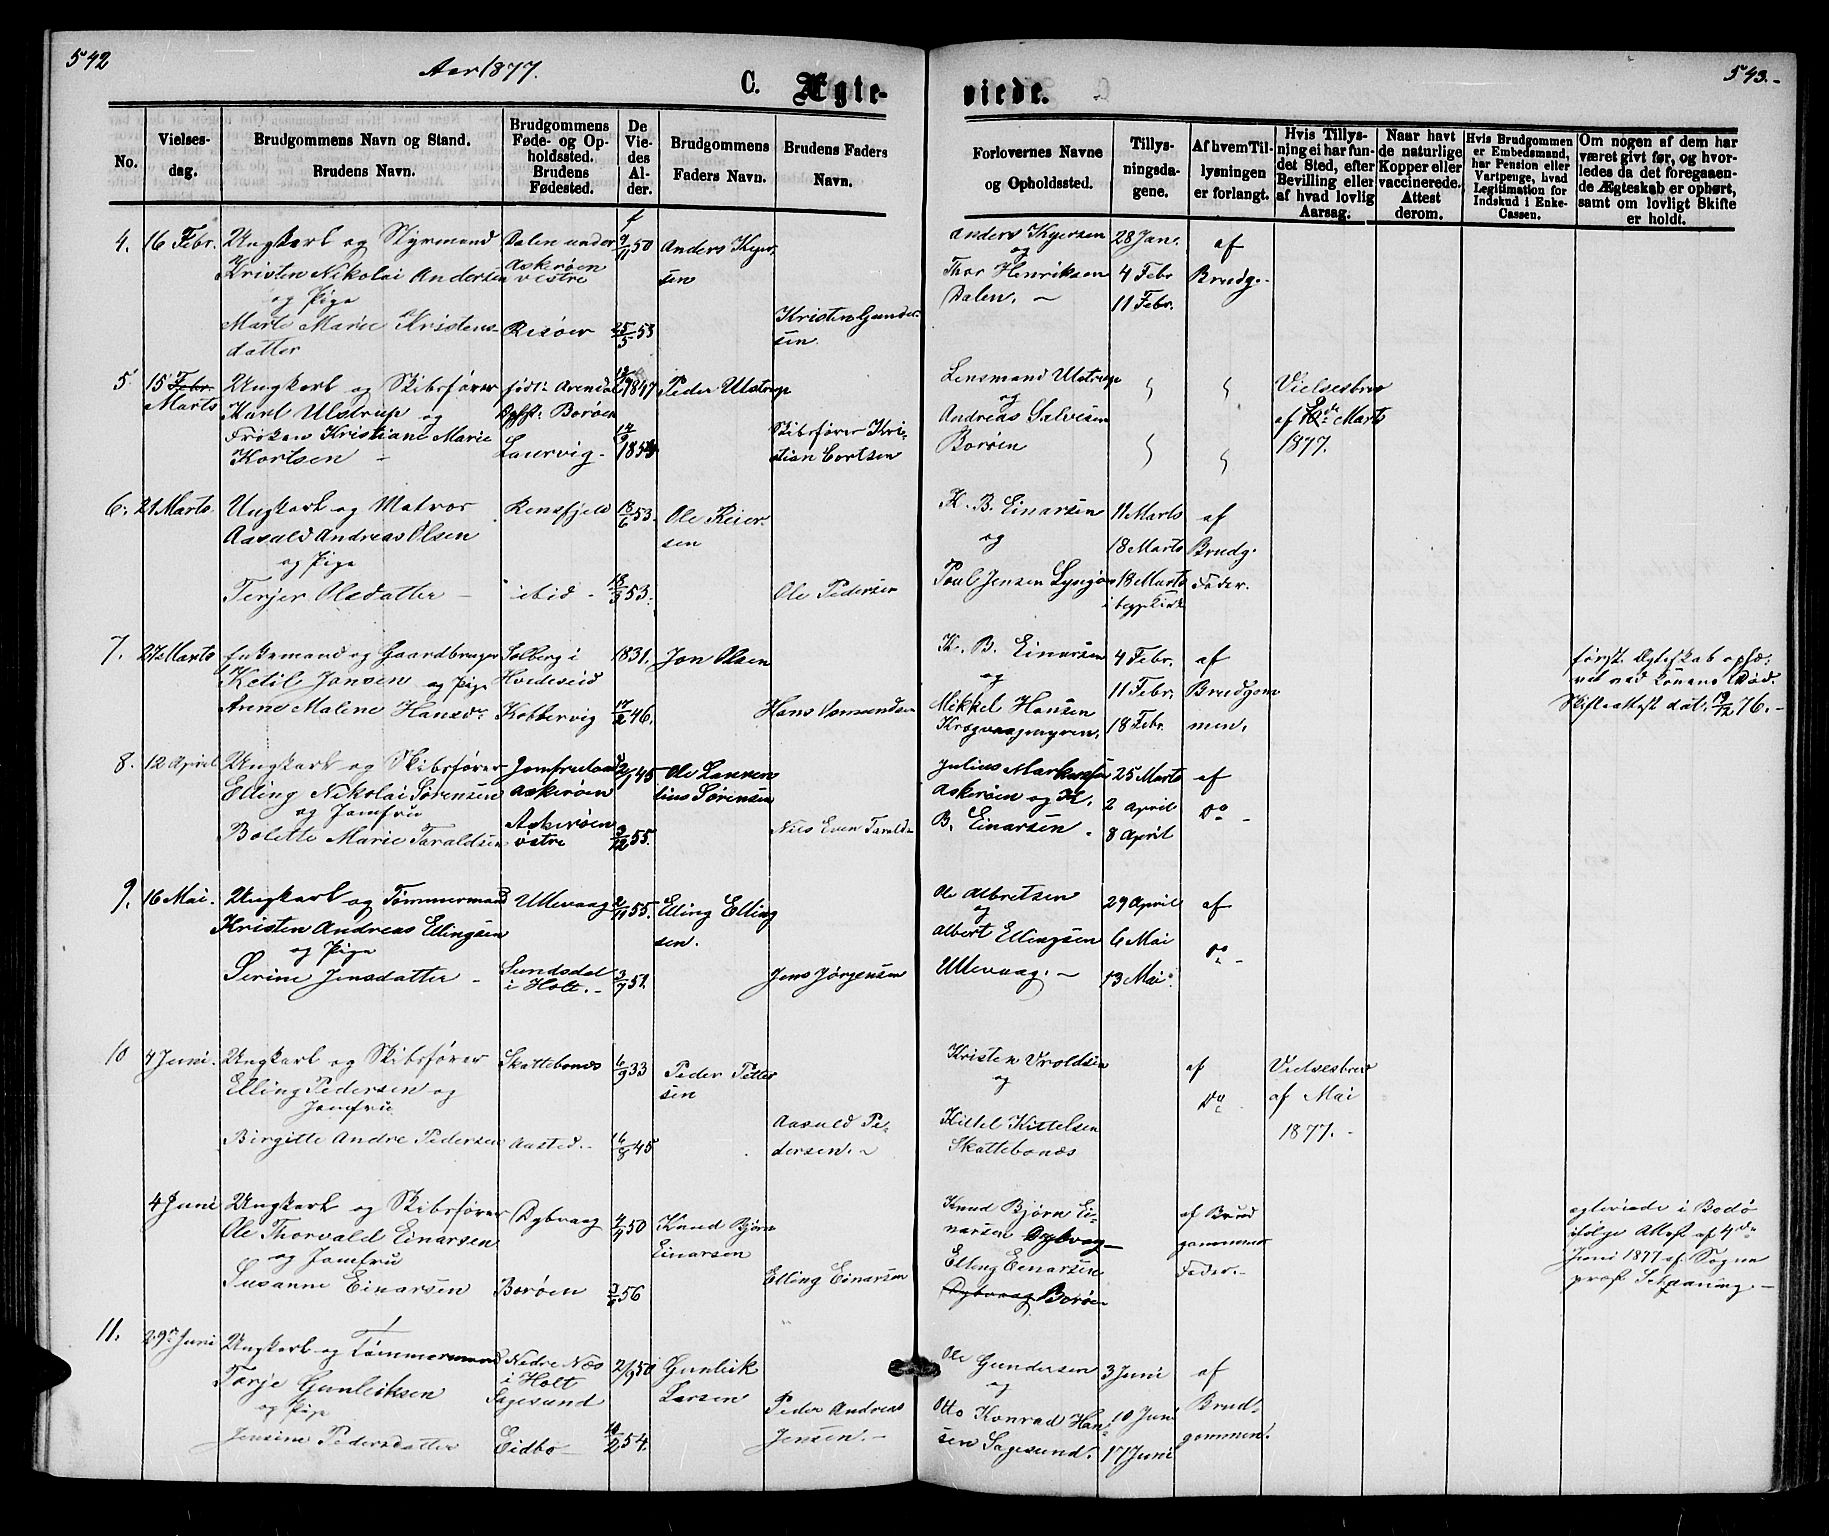 542
Aar 1877.
C. Ægte-
viede.
543.-
No.
Vielses-
dag.
Brudgommens Navn og Stand.
Brudens Navn.
Brudgommens
Føde- og Op-
holdssted.
Brudens
Fødested.
De
Vie-
des
Al-
der.
Brudgommens
Faders Navn.
Brudens Faders
Navn.
Forlovernes Navne
og Opholdssted.
Tillys-
ningsda-
gene.
Af hvem Til-
lysningen
er forlangt.
Hvis Tillys-
ning ei har fun-
det Sted, efter
Bevilling eller
af hvad lovlig
Aarsag.
Naar havt
de naturlige
Kopper eller
vaccinerede.
Attest
derom.
Hvis Brudgommen
er Embedsmand,
har Pension eller
Vartpenge, hvad
Legitimation for
Indskud i Enke-
Cassen.
Om nogen af dem har
været givt før, og hvor-
ledes da det foregaaen-
de Ægteskab er ophørt,
samt om lovligt Skifte
er holdt.
4. 16 Febr.
Ungkarl og Styrmand
Kristen Nikolai Andersen
og Pige
Marte Marie Kristens-
datter
Dalen under
Askerøen
vestre
Risøer
50
25/5 53
Anders Kjer-
sen
Kristen Gunder-
sen.
Anders Kjersen
og
Thor Henriksen
Dalen. -
28 Jan.
4 Febr
11 Febr.
af
Brudg.
5. 15 Febr.
Marts
Ungkarl og Skibsfører
Karl Ulstrup og
Frøken Kristiane Marie
Kortsen -
født: Arendal
Borøen
Laurvig -
Peder Ulstrup
Skibsfører Kri-
stian Cortsen
Lensmand Ulstrup
og
Andreas Salvesen
Borøen
Vielsesbrev
af Marts
1877.
6. 21 Marts
Ungkarl og Matros
Aasald Andreas Olsen
og Pige
Terjer Olsdatter -
Rensfjeld
ibid -
18/6 53.
18/3 53.
Ole Reier-
sen
Ole Pedersen
K. B. Einarsen
og
Poul Jensen Lyngør
11 Marts
18 Marts
18 Marts
i begge Kirk
af
Brudg.
Fader.
7. 27 Marts
Enkemand og Gaardbruger
Ketil Jonsen og Pige
Anne Malene Hansdr.
Solberg i
Hvideseid
Kobbervig
1831.
17/2 46.
Jon Olsen
Hans
K. B. Einarsen
og
Mikkel Hansen
Krogvaagmyren.
4 Febr.
11 Febr.
18 Febr.
af
Brudgom
men.
første Ægteskab ophæ-
vet ved Konens Død.
Skifteattest dat. 19/12 76. -
8. 12 April
Ungkarl og Skibsfører
Elling Nikolai Sørensen
og Jomfru
Bolette Marie Taraldsen
Jomfruland
Askerøen
Askerøen
østre
45
3/12 55.
Ole Lauren-
tius Sørensen
Nils Even Taralds
Julius Markussen
Askerøen og K.
B. Einarsen
25 Marts
2 April
8 April
af
Do -
9. 16 Mai.
Ungkarl og Tømmermand
Kristen Andreas Ellingsen
og Pige
Serine Jensdatter -
Ullevaag
Sundsdal
i Holt. -
2/11 55.
3/9 51.
Elling Elling
sen.
Jens Jørgensen
Ole Albretsen
og
Albert Ellingsen
Ullevaag. -
29 April
6 Mai
13 Mai
af
Do -
10 4 Juni.
Ungkarl og Skibsfører
Elling Pedersen og
Jomfru
Birgitte Andre Pedersen
Skottebonæs
Aasted. -
6/9 33
16/8 45
Peder Petter
sen
Aasuld Pe-
dersen. -
Kristen Vroldsen
og
Kittel Kittelsen
Skottebonæs
af
Do -
Vielsesbrev
af Mai
1877. -
4 Juni
Ungkarl og Skibsfører
Ole Thorvald Einarsen
og Jomfru
Susanne Einarsen
Dybvaag
Borøen
50
56
Knud Bjørn
Einarsen
Elling Einarsen
Knud Bjørn Ei-
narsen Dybvag
Elling Einarsen
Dybvaag Borøen
af Brud
gommens
Fader. -
egteviede i Bodø
ifølge Attest af 4de
Juni 1877 af Sogne
præst -
11. 29 Juni
Ungkarl og Tømmermand
Torje Gunleiksen
og Pige
Jensine Pedersdatter
Nedre Næs
i Holt
Sagesund
Eidbo -
2/9 50
54.
Gunleik
Larsen
Peder Andreas
Jensen. -
Ole Gundersen
og
Otto Konrad Han-
sen Sagesund.
3 Juni
10 Juni
17 Juni
af
Brud-
gommen.